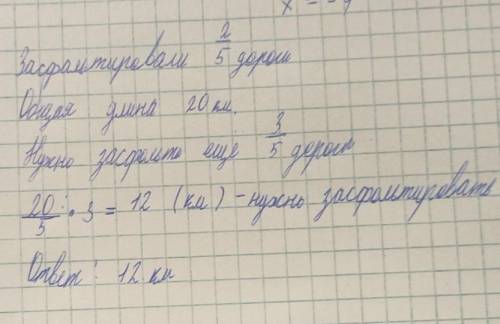 x = -9
Засфальтировали 2/5 дороги
Общая длина 20 км.
Нужно засфальть ещё 3/5 дороги
20/5 • 3 = 12 (км) - нужно засфальтировать
Ответ: 12 км